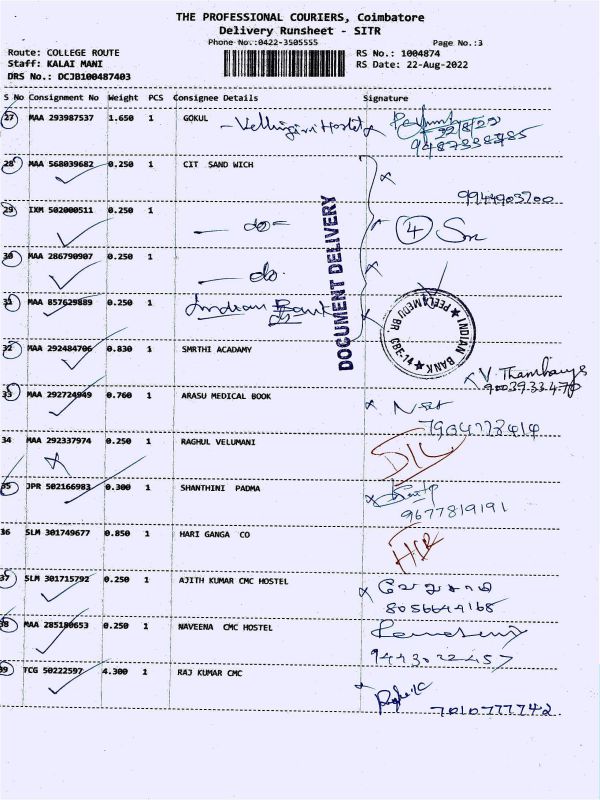 THE PROFESSIONAL COURIERS, Coimbatore
Delivery Runsheet - SITR
Phone No.:0422-3505555 Page No.:3
Route: COLLEGE ROUTE RS No.: 1004874
Staff: KALAI MANI RS Date: 22-Aug-2022
DRS No.: DCJB100487403
S No Consignment No Weight PCS Consignee Details Signature
27 MAA 293987537 1.650 1 GOKUL
22/8/22
28 MAA 568039682 0.250 1 CIT SAND WICH
9944903200
29 IXM 502000511 0.250 1
- do - 4
30 MAA 286790907 0.250 1
- do.
DOCUMENT DELIVERY
31 MAA 857629889 0.250 1 Indian Bank
INDIAN BANK PEELAMEDU BR. CBE-14
32 MAA 292484706 0.830 1 SMRTHI ACADAMY
33 MAA 292724949 0.760 1 ARASU MEDICAL BOOK
34 MAA 292337974 0.250 1 RAGHUL VELUMANI
35 JPR 502166983 0.300 1 SHANTHINI PADMA
9677819191
36 SLM 301749677 0.850 1 HARI GANGA CO
37 SLM 301715792 0.250 1 AJITH KUMAR CMC HOSTEL
8056644168
38 MAA 285180653 0.250 1 NAVEENA CMC HOSTEL
9443022457
39 TCG 50222597 4.300 1 RAJ KUMAR CMC
7010777742